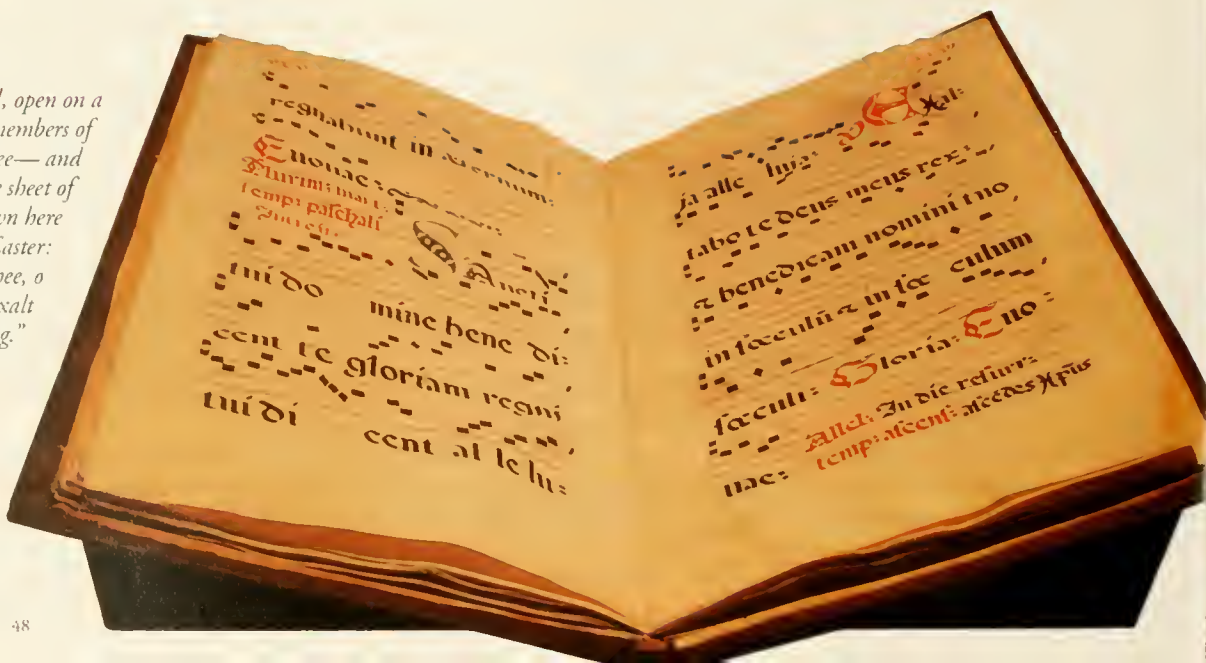 l, open on a
members of
ee— and
e sheet of
wn here
Easter:
hee, o
xalt
g."
regnabunt in aeternum:
Euouae:
Plurim: mart:
temp: paschali
Introitus:
Sancti
tui do mine bene di:
cent te gloriam regni
tui di cent al le lu:
ja alle luja: V Exal:
tabo te deus meus rex:
& benedicam nomini tuo
in sœculũ & in sœ culum
sœculi: Gloria: Euo
uae: Allel: In die resurr:
temp: ascens: ascẽdes Xpũs
48